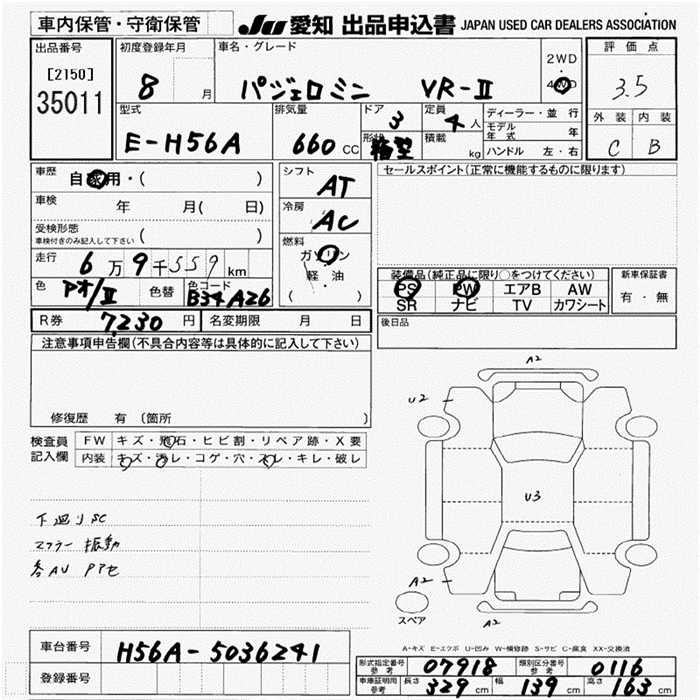 車内保管・守衛保管
JU 愛知 出品申込書 JAPAN USED CAR DEALERS ASSOCIATION
出品番号
[2150]
35011
初度登録年月
8 月
車名・グレード
パジェロミニ VR-II
2WD
4WD
評価点
3.5
外装 内装
C B
型式
E-H56A
排気量
660 cc
ドア
3
形状
箱型
定員
4 人
積載
kg
ディーラー・並行
モデル年式 年
ハンドル 左・右
車歴
自家用・( )
車検
年 月( 日)
受検形態
車検付きのみ記入して下さい ( )
走行
6万9千559km
色
アオ/II
色替
色コード
B34A26
シフト
AT
冷房
AC
燃料
ガソリン
軽・油
( )
セールスポイント(正常に機能するものに限ります)
装備品(純正品に限り○をつけてください)
PS PW エアB AW
SR ナビ TV カワシート
新車保証書
有・無
R券 7230 円
名変期限 月 日
後日品
注意事項申告欄(不具合内容等は具体的に記入して下さい)
修復歴 有 〔箇所 〕
検査員記入欄
FW キズ・飛石・ヒビ割・リペア跡・X要
内装 キズ・汚レ・コゲ・穴・スレ・キレ・破レ
下廻りSC
マフラー振動
各AU PPセ
A2
U2
U3
A2
A2
スペア
A-キズ E-エクボ U-凹み W-補修跡 S-サビ C-腐食 XX-交換済
車台番号
H56A-5036241
登録番号
形式指定番号 参考 07918
類別区分番号 参考 0116
車庫証明用 参考 長さ 329 cm 幅 139 cm 高さ 163 cm